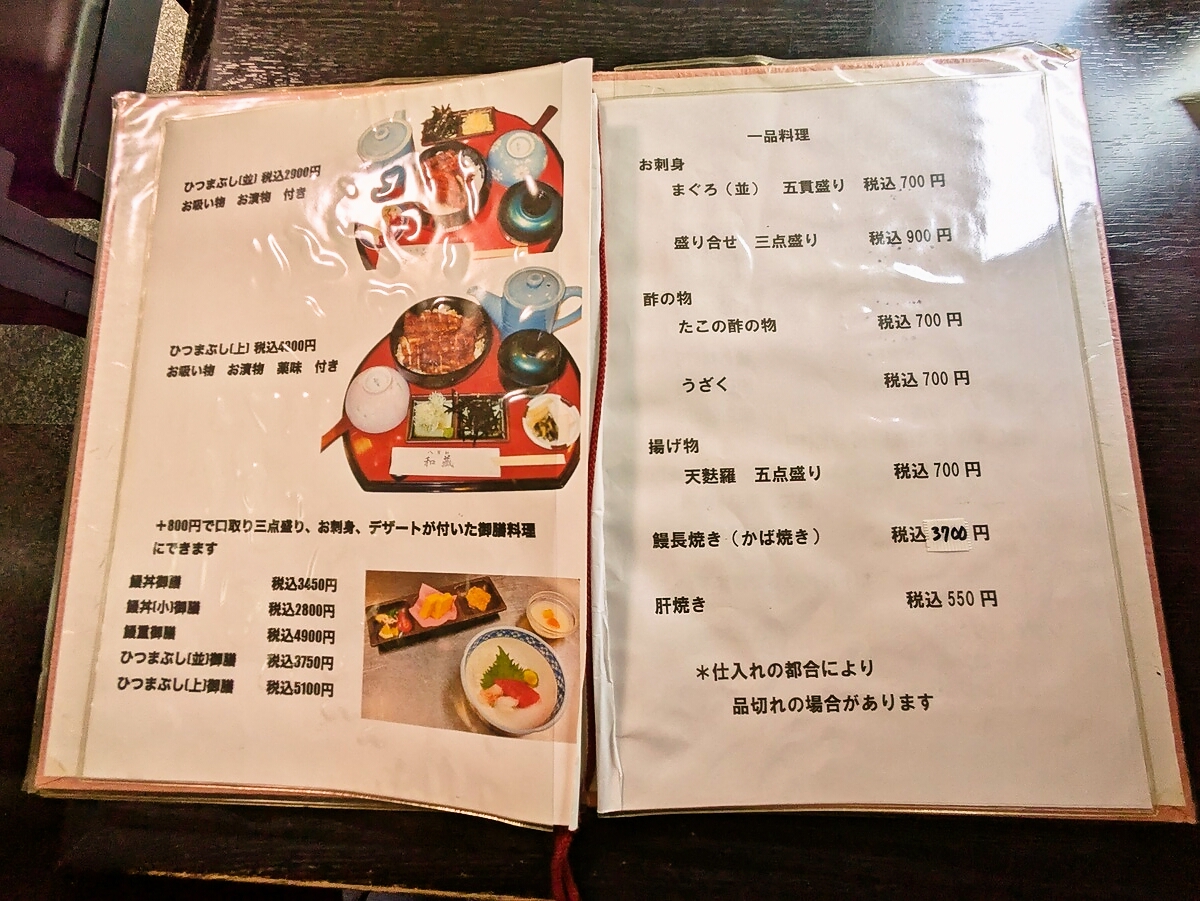 ひつまぶし(並) 税込2900円
お吸い物 お漬物 付き
ひつまぶし(上) 税込4300円
お吸い物 お漬物 薬味 付き
和蔵
+800円で口取り三点盛り、お刺身、デザートが付いた御膳料理
にできます
鰻丼御膳 税込3450円
鰻丼(小)御膳 税込2800円
鰻重御膳 税込4900円
ひつまぶし(並)御膳 税込3750円
ひつまぶし(上)御膳 税込5100円
一品料理
お刺身
まぐろ(並) 五貫盛り 税込 700 円
盛り合せ 三点盛り 税込 900 円
酢の物
たこの酢の物 税込 700 円
うざく 税込 700 円
揚げ物
天麩羅 五点盛り 税込 700 円
鰻長焼き(かば焼き) 税込 3700 円
肝焼き 税込 550 円
*仕入れの都合により
品切れの場合があります